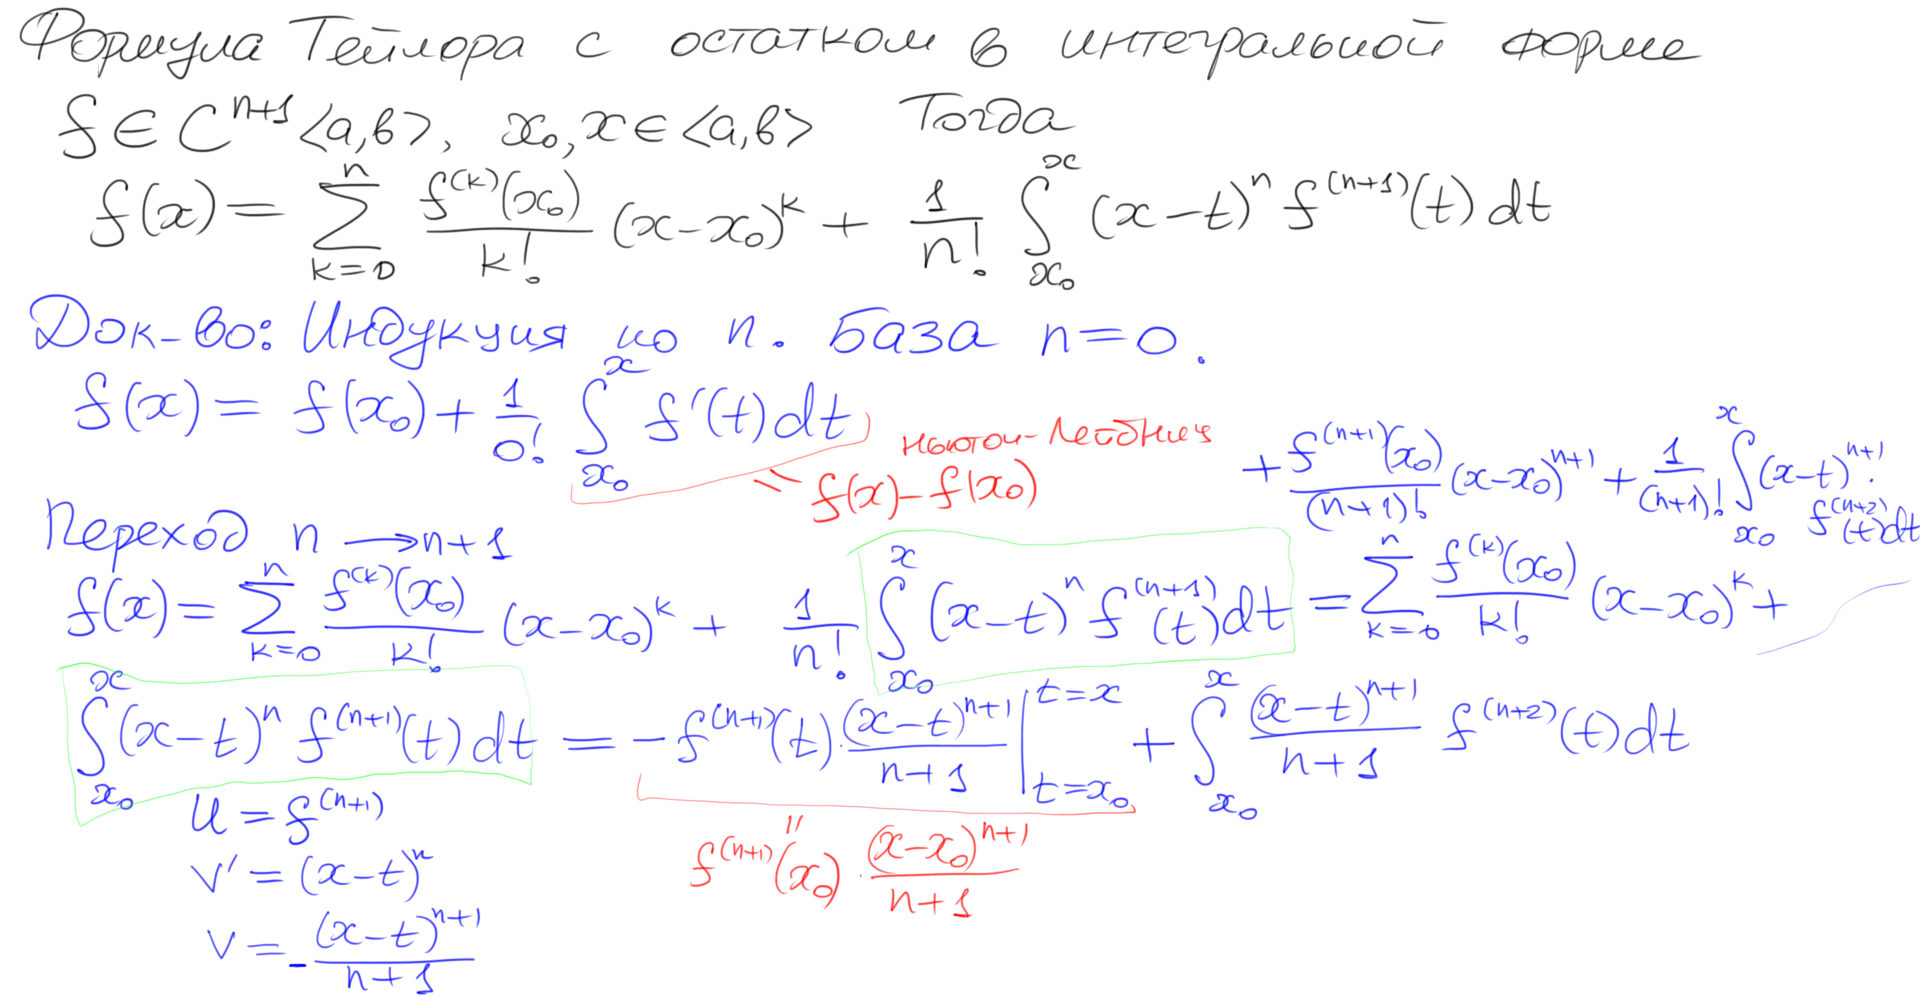 Формула Тейлора с остатком в интегральной форме
f ∈ C^{n+1}<a,b>, x₀, x ∈ <a,b> Тогда
f(x) = \sum_{k=0}^{n} \frac{f^{(k)}(x_0)}{k!} (x-x_0)^k + \frac{1}{n!} \int_{x_0}^{x} (x-t)^n f^{(n+1)}(t) dt
Док-во: Индукция по n. База n=0.
f(x) = f(x_0) + \frac{1}{0!} \int_{x_0}^{x} f'(t) dt
Ньютон-Лейбниц
= f(x) - f(x_0)
Переход n → n+1
f(x) = \sum_{k=0}^{n} \frac{f^{(k)}(x_0)}{k!} (x-x_0)^k + \frac{1}{n!} \int_{x_0}^{x} (x-t)^n f^{(n+1)}(t) dt = \sum_{k=0}^{n} \frac{f^{(k)}(x_0)}{k!} (x-x_0)^k +
+ \frac{f^{(n+1)}(x_0)}{(n+1)!} (x-x_0)^{n+1} + \frac{1}{(n+1)!} \int_{x_0}^{x} (x-t)^{n+1} · f^{(n+2)}(t) dt
\int_{x_0}^{x} (x-t)^n f^{(n+1)}(t) dt = -f^{(n+1)}(t) · \frac{(x-t)^{n+1}}{n+1} |_{t=x_0}^{t=x} + \int_{x_0}^{x} \frac{(x-t)^{n+1}}{n+1} f^{(n+2)}(t) dt
u = f^{(n+1)}
v' = (x-t)^n
v = -\frac{(x-t)^{n+1}}{n+1}
= f^{(n+1)}(x_0) · \frac{(x-x_0)^{n+1}}{n+1}